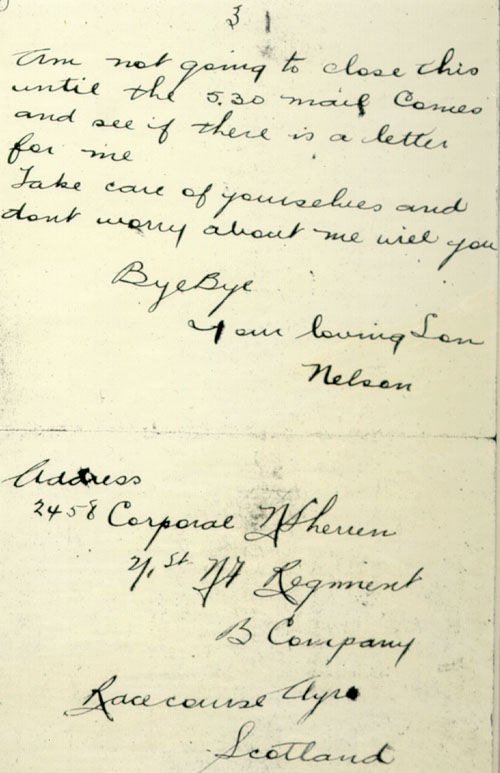 3
Am not going to close this
until the 5.30 mail Comes
and see if there is a letter
for me
Take care of yourselves and
dont worry about me will you
ByeBye
Your loving Son
Nelson
Address
2458 Corporal N Sherren
2/1st Nfd Regiment
B Company
Racecourse Ayr
Scotland